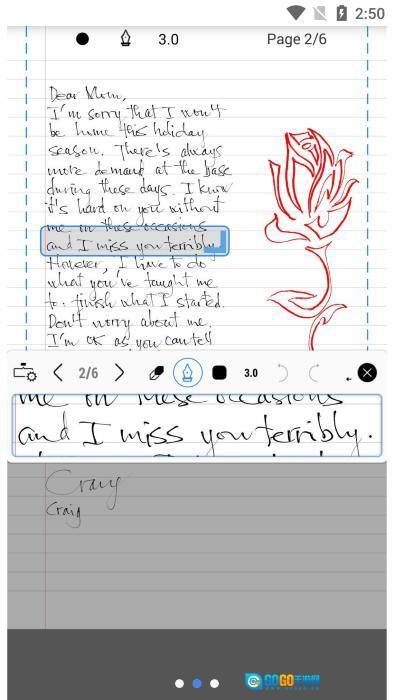 2:50
3.0 Page 2/6
Dear Mom,
I'm sorry that I won't
be home this holiday
season. There's always
more demand at the base
during these days. I know
it's hard on you without
me on these occasions
and I miss you terribly.
However, I have to do
what you've taught me
to: finish what I started.
Don't worry about me,
I'm OK as you can tell
2/6 3.0
me on these occasions
and I miss you terribly.
Craig
Craig
GOGO手游网